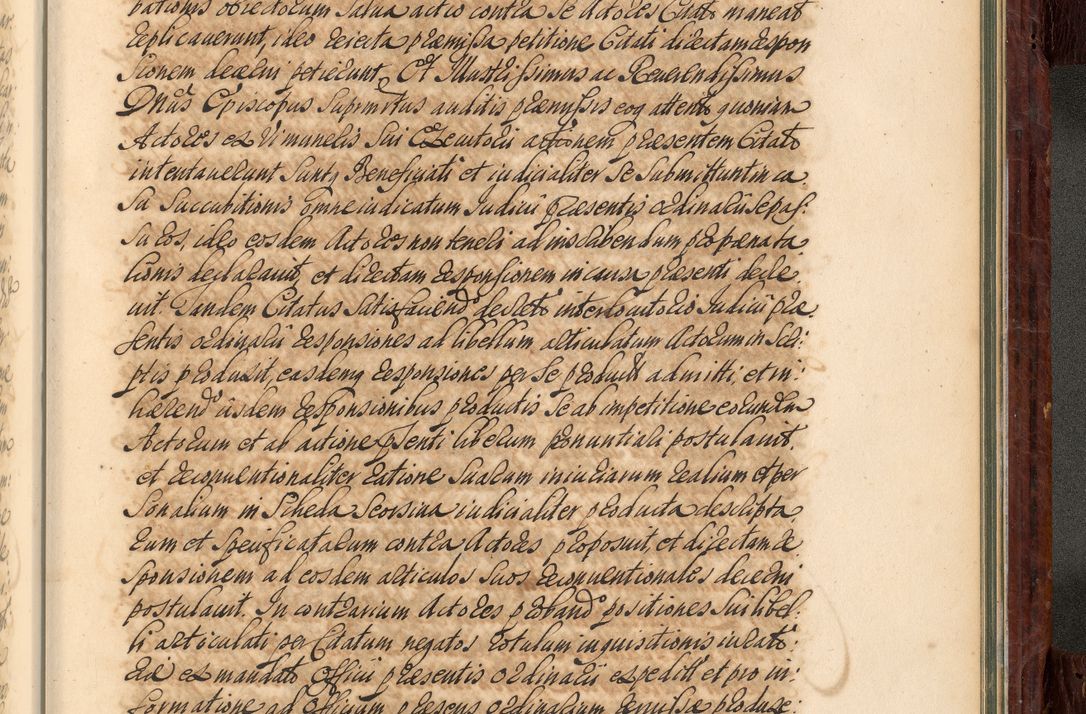 pationis obiectorum Salua actio contra Se Actores Citato maneat
replicauerunt, ideo reiecta præmissa petitione Citati directam respon
sionem decerni petierunt. Et Illustrissimus ac Reuerendissimus
Dnus Episcopus Supremitus auditis præmissis eoq attento quoniam
Actores ex Vi muneris Sui Executorii actionem præsentem Citato
intentauerunt Suntq Beneficiati et iudicialiter Se Submittunt in ca
Su Succubitionis omne iudicatum Iudicii præsentis ordinarii Se pas:
Suros, ideo eosdem Actores non teneri ad inscribendum pro pœna ta
lionis declarauit, et directam responsionem in causa præsenti decre
uit. Tandem Citatus Satisfaciendo decreto interlocutorio Iudicii præ
sentis ordinarii responsiones ad libellum articulatum Actorum in Scri:
ptis produxit, easdemq responsiones per Se productas admitti, et in:
hærendo iisdem responsionibus productis Se ab impetitione eorundem
Actorum et ab actione pñsenti liberum pronuntiari postulauit,
et reconuentionaliter ratione Suarum iniuriarum realium et per
Sonalium in Scheda Seorsiua iudicialiter producta descripta
rum et Specificatarum contra Actores proposuit, et directam re
sponsionem ad eosdem articulos Suos reconuentionales decerni
postulauit. In contrarium Actores probando positiones Sui libel:
li articulati per Citatum negatos rotulum inquisitionis iurato:
riæ ex mandato Officii præsentis ordinarii expediti et pro in:
formatione ad Officium præsens ordinarium remissæ produxe: